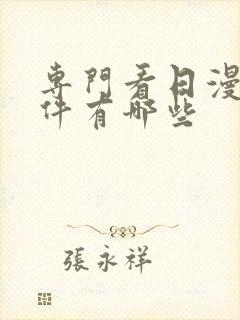 專門看日漫
件有哪些
張永祥